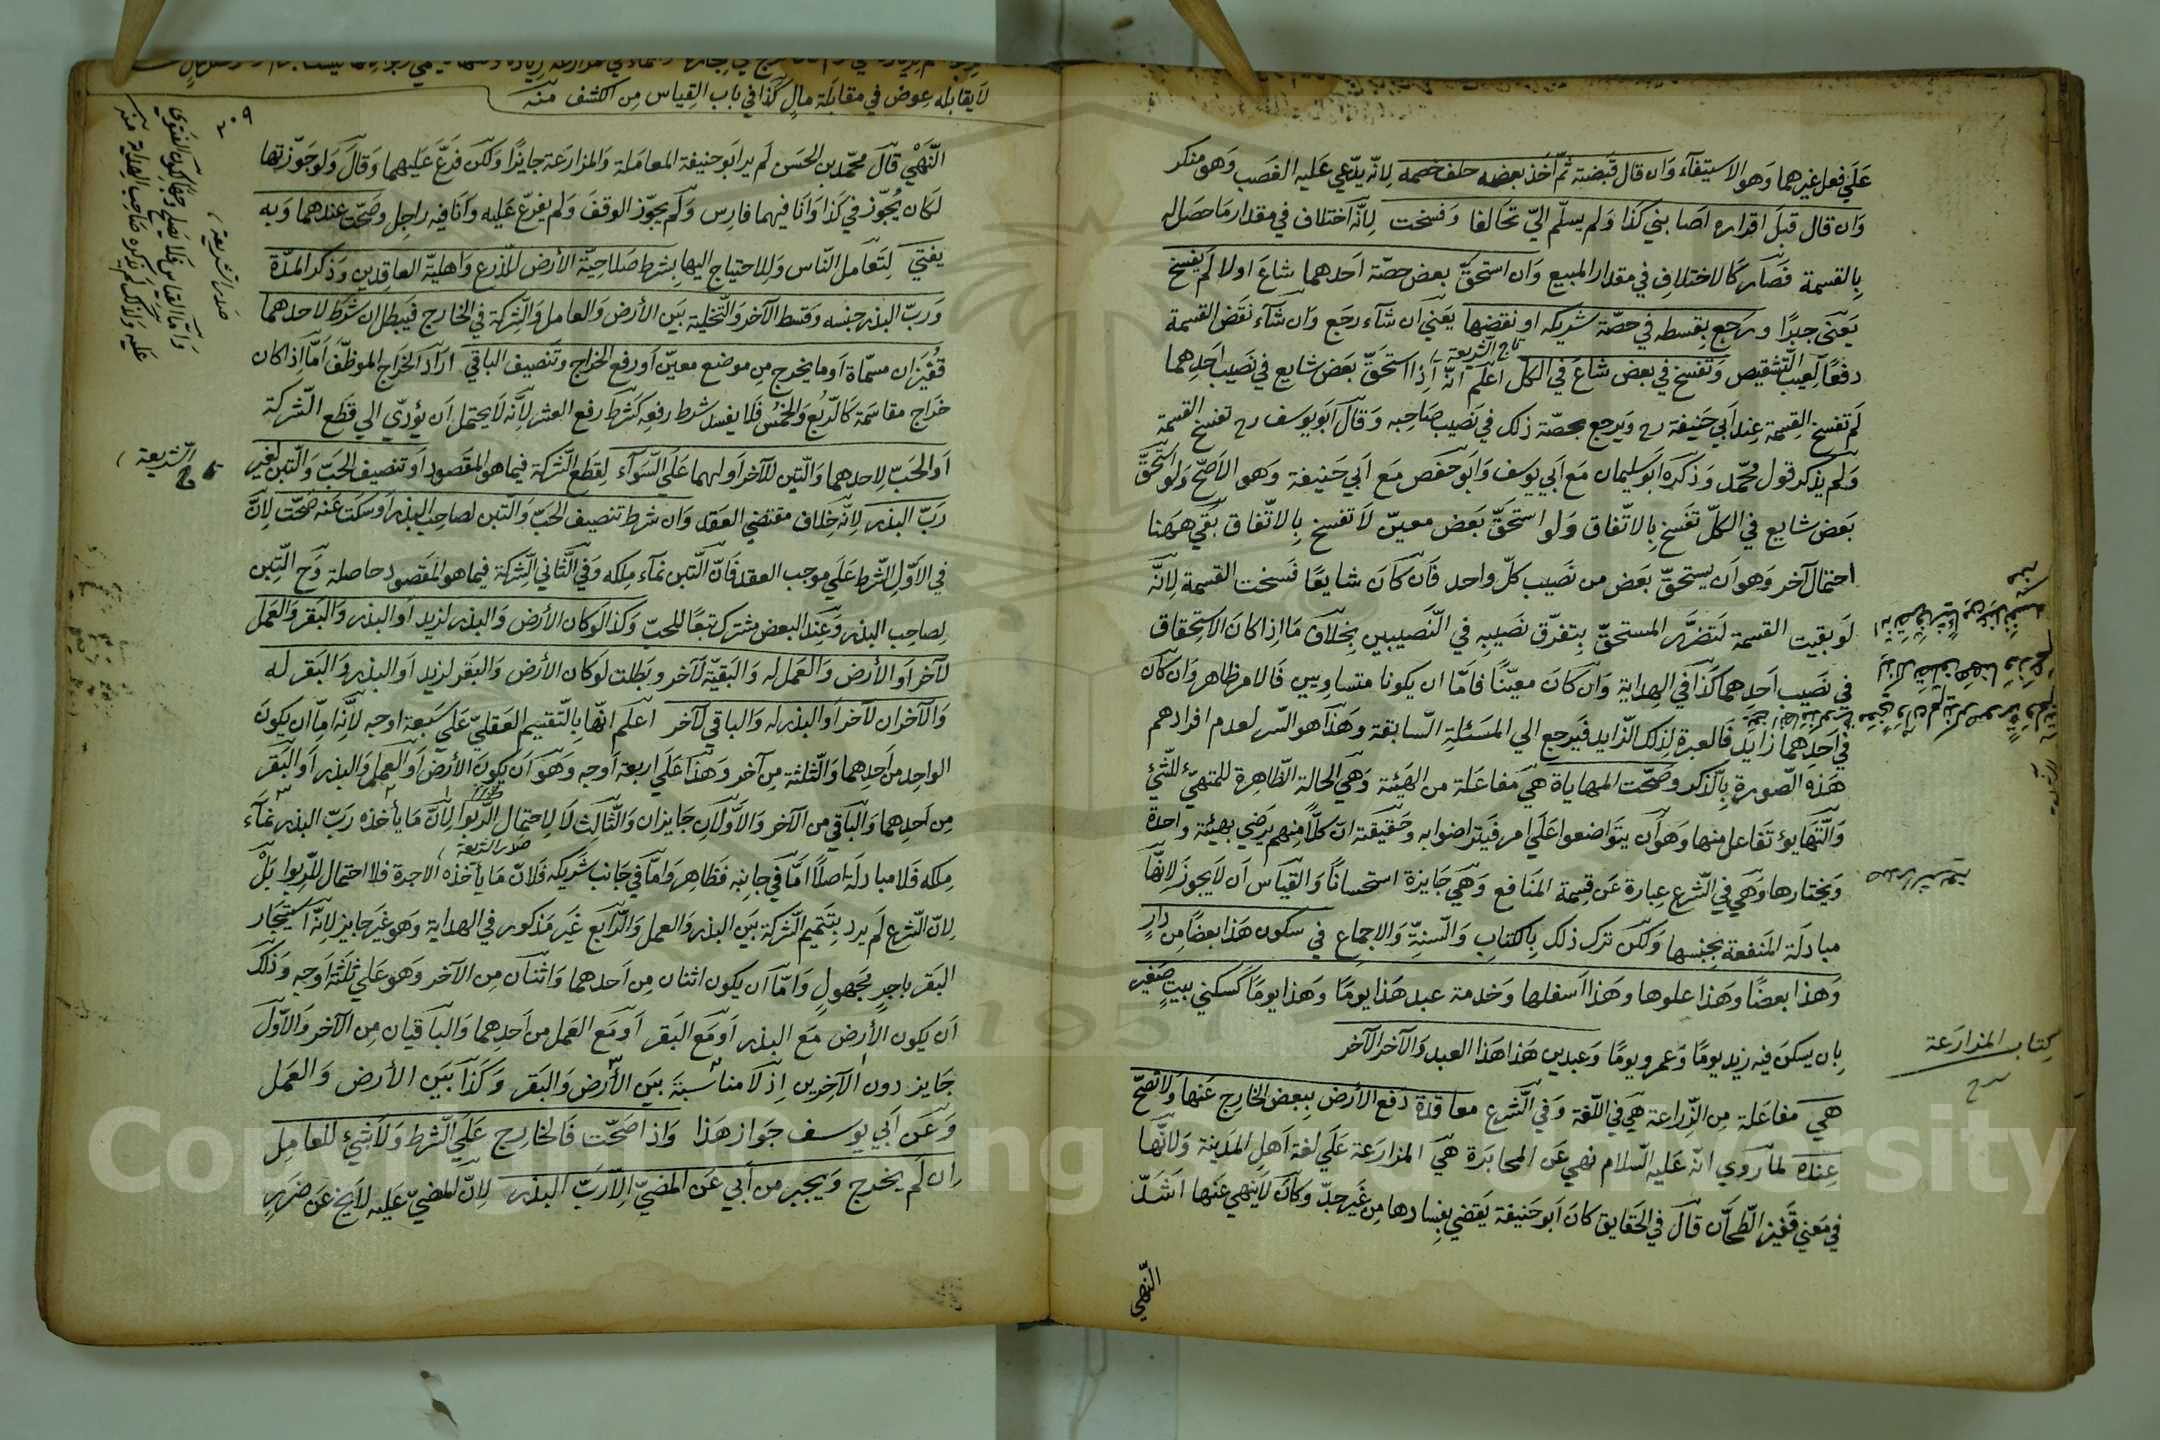 علي فعل غيرهما وهو الاستيفآء وان قال قبضته ثم أخذ بعضه حلف خصمه لانّه يدّعي عليه الغصب وهو منكر
وان قال قبل اقراره اصابني كذا ولم يسلّم اليّ تحالفا وفسخت لانّه اختلاف في مقدار ما حصل له
بالقسمة فصار كالاختلاف في مقدار المبيع وان استحقّ بعض حصّة احدهما شاع اولا لم يفسخ
يعنى جبرًا ورجع بقسطه في حصّة شريكه او نقضها يعني ان شآء رجع وان شآء نقض القسمة
تاج الشريعة
دفعًا لعيب التّشقيص وتفسخ في بعض شاع في الكلّ اعلم انّه اذا استحقّ بعض شايع في نصيب احدهما
لم تفسخ القسمة عند أبي حنيفة رح ويرجع بحصّة ذلك في نصيب صاحبه وقال ابو يوسف رح تفسخ القسمة
ولم يذكر قول محمّد وذكره ابو سليمان مع أبي يوسف وابو حفص مع أبي حنيفة وهو الاصّح ولو استحقّ
بعض شايع في الكلّ تفسخ بالاتّفاق ولو استحقّ بعض معيّن لا تفسخ بالاتّفاق بقي ههنا
احتمال آخر وهو ان يستحقّ بعض من نصيب كلّ واحد فان كان شايعًا فسخت القسمة لانّه
لو بقيت القسمة لتضرّر المستحقّ بتفرّق نصيبه في النّصيبين بخلاف ما اذا كان الاستحقاق
في نصيب احدهما كذا في الهداية وان كان معيّنًا فامّا ان يكونا متساويين فالامر ظاهر وان كان
في احدهما زايد فالعبرة لذلك الزّايد فيرجع الي المسئلة السّابقة وهذا هو السّر لعدم افرادهم
هذه الصّورة بالذّكر وصحّت المهاياة هي مفاعلة من الهيئة وهي الحالة الظّاهرة للمتهيّئ للشّئ
والتّهايؤ تفاعل منها وهو ان يتواضعوا علي امر فيتراضوا به وحقيقته انّ كلًّا منهم يرضي بهيئة واحدة
ويختارها وهي في الشّرع عبارة عن قسمة المنافع وهي جايزة استحسانًا والقياس ان لا يجوز لانّها
مبادلة المنفعة بجنسها ولكن ترك ذلك بالكتاب والسّنّة والاجماع في سكون هذا بعضًا من دار
وهذا بعضًا وهذا علوها وهذا اسفلها وخدمة عبد هذا يومًا وهذا يومًا كسكني بيت صغير
بان يسكن فيه زيد يومًا وعمرو يومًا وعبدين هذا هذا العبد والآخر الآخر
كتاب المزارعة
هي مفاعلة من الزّراعة هي في اللّغة وفي الشّرع معاقدة دفع الأرض ببعض الخارج عنها ولا تصحّ
عنده لما روي انّه عليه السّلام نهي عن المخابرة هي المزارعة علي لغة اهل المدينة ولانّها
في معني قفيز الطّحّان قال في الحقايق كان ابو حنيفة يقضي بفسادها من غير جدّ وكان لا ينهي عنها اشدّ
النّهي
لا يقابله عوض في مقابلة مال كذا في باب القياس من الكشف منه
٢٠٩
النّهي قال محمّد بن الحسن لم ير ابو حنيفة المعاملة والمزارعة جايزًا ولكن فرّع عليهما وقال ولو جوّزتها
لكان يُجوّز في كذا وانا فيهما فارس ولم يجوّز الوقف ولم يفرّع عليه وانا فيه راجل وصحّت عندهما وبه
يفتي لتعامل النّاس وللاحتياج اليها بشرط صلاحيّة الأرض للزّرع واهليّة العاقدين وذكر المدّة
وربّ البذر وجنسه وقسط الآخر والتّخلية بين الأرض والعامل والشّركة في الخارج فيبطل ان شرط لاحدهما
قفيزان مسمّاة او ما يخرج من موضع معيّن او رفع الخراج وتنصيف الباقي اراد الخراج الموظّف امّا اذا كان
خراج مقاسمة كالرّبع والخمُس فلا يفسد شرط رفعه كشرط رفع العشر لانّه لا يحتمل ان يؤدّي الي قطع الشّركة
او الحَبّ لاحدهما والتّبن للآخر او لهما علي السّوآء لقطع الشّركة فيما هو المقصود او تنصيف الحبّ والتّبن لغير
تاج الشّريعة
ربّ البذر لانّه خلاف مقتضي العقد وان شرط تنصيف الحبّ والتّبن لصاحب البذر او سكت عنه صحّت لانّه
في الاوّل الشّرط علي موجب العقد فانّ التّبن نمآء ملكه وفي الثّاني الشّركة فيما هو المقصود حاصلة وح التّبن
لصاحب البذر وعند البعض مشترك تبعًا للحبّ وكذا لو كان الأرض والبذر لزيد او البذر والبقر والعمل
لآخر او الأرض والعمل له والبقيّة لآخر وبطلت لو كان الأرض والبقر لزيد او البذر والبقر له
والآخران لآخر او البذر له والباقي لآخر اعلم انّها بالتّقسيم العقليّ علي سبعة اوجه لانّه امّا ان يكون
الواحد من احدهما والثّلثة من آخر وهذا علي اربعة اوجه وهو ان يكون الأرض او العمل او البذر او البقر
من احدهما والباقي من الآخر والاوّلان جايزان والثّالث لا لاحتمال الرّبوا لانّ ما يأخذه ربّ البذر نمآء
صدر الشريعة
ملكه فلا مبادلة اصلًا امّا في جانبه فظاهر وامّا في جانب شريكه فلانّ ما يأخذه الاجرة فلا احتمال للرّبوا بل
لانّ الشّرع لم يرد بتتميم الشّركة بين البذر والعمل والرّابع غير مذكور في الهداية وهو غير جايز لانّه استيجار
البقر باجر مجهول وامّا ان يكون اثنان من احدهما واثنان من الآخر وهو علي ثلثة اوجه وذلك
ان يكون الأرض مع البذر او مع البقر او مع العمل من احدهما والباقيان من الآخر والاوّل
جايز دون الآخرين اذ لا مناسبة بين الأرض والبقر وكذا بين الأرض والعمل
وعن أبي يوسف جواز هذا واذا صحّت فالخارج علي الشّرط ولا شيئ للعامل
ان لم يخرج ويجبر من أبي عن المضيّ الّا ربّ البذر لانّ المضيّ عليه لا يخ عن ضرر
صدر الشريعة
Copyright © King Saud University
1957